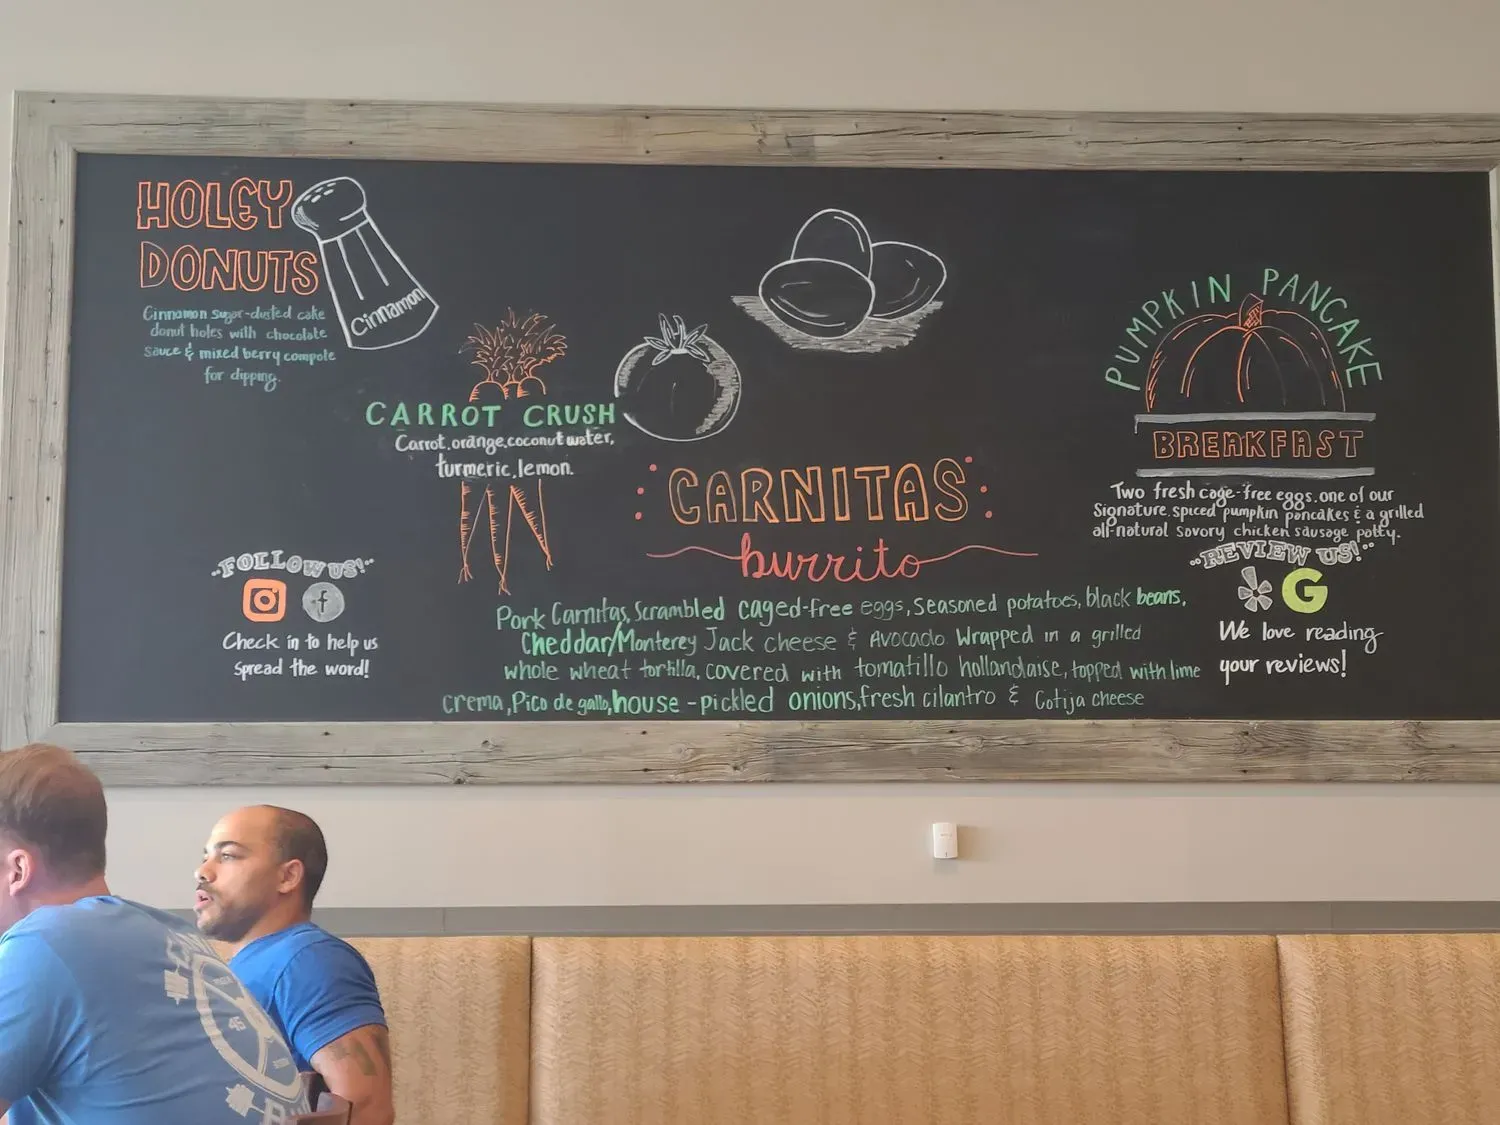 HOLEY
DONUTS
Cinnamon
Cinnamon sugar-dusted cake
donut holes with chocolate
sauce & mixed berry compote
for dipping.
CARROT CRUSH
Carrot, orange, coconut water,
turmeric, lemon.
CARNITAS
burrito
Pork Carnitas, Scrambled caged-free eggs, Seasoned potatoes, black beans,
Cheddar/Monterey Jack cheese & Avocado. Wrapped in a grilled
whole wheat tortilla, covered with tomatillo hollandaise, topped with lime
crema, Pico de gallo, house-pickled onions, fresh cilantro & Cotija cheese
PUMPKIN PANCAKE
BREAKFAST
Two fresh cage-free eggs, one of our
Signature spiced pumpkin pancakes & a grilled
all-natural savory chicken sausage patty.
FOLLOW US!
f
Check in to help us
Spread the word!
REVIEW US!
G
We love reading
your reviews!